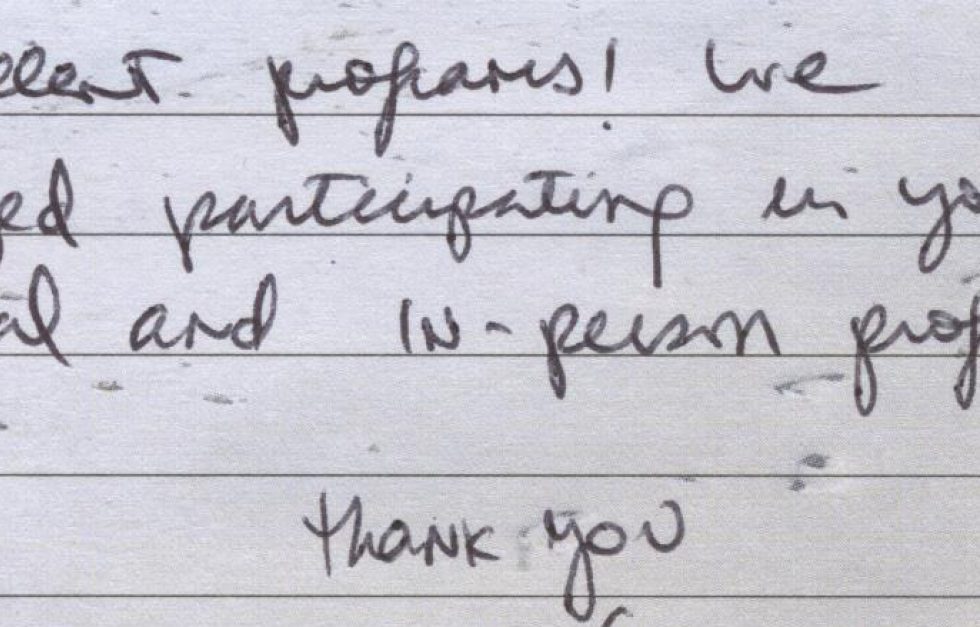 ellent programs! We
ed participating in yo
al and in-person prog
thank you